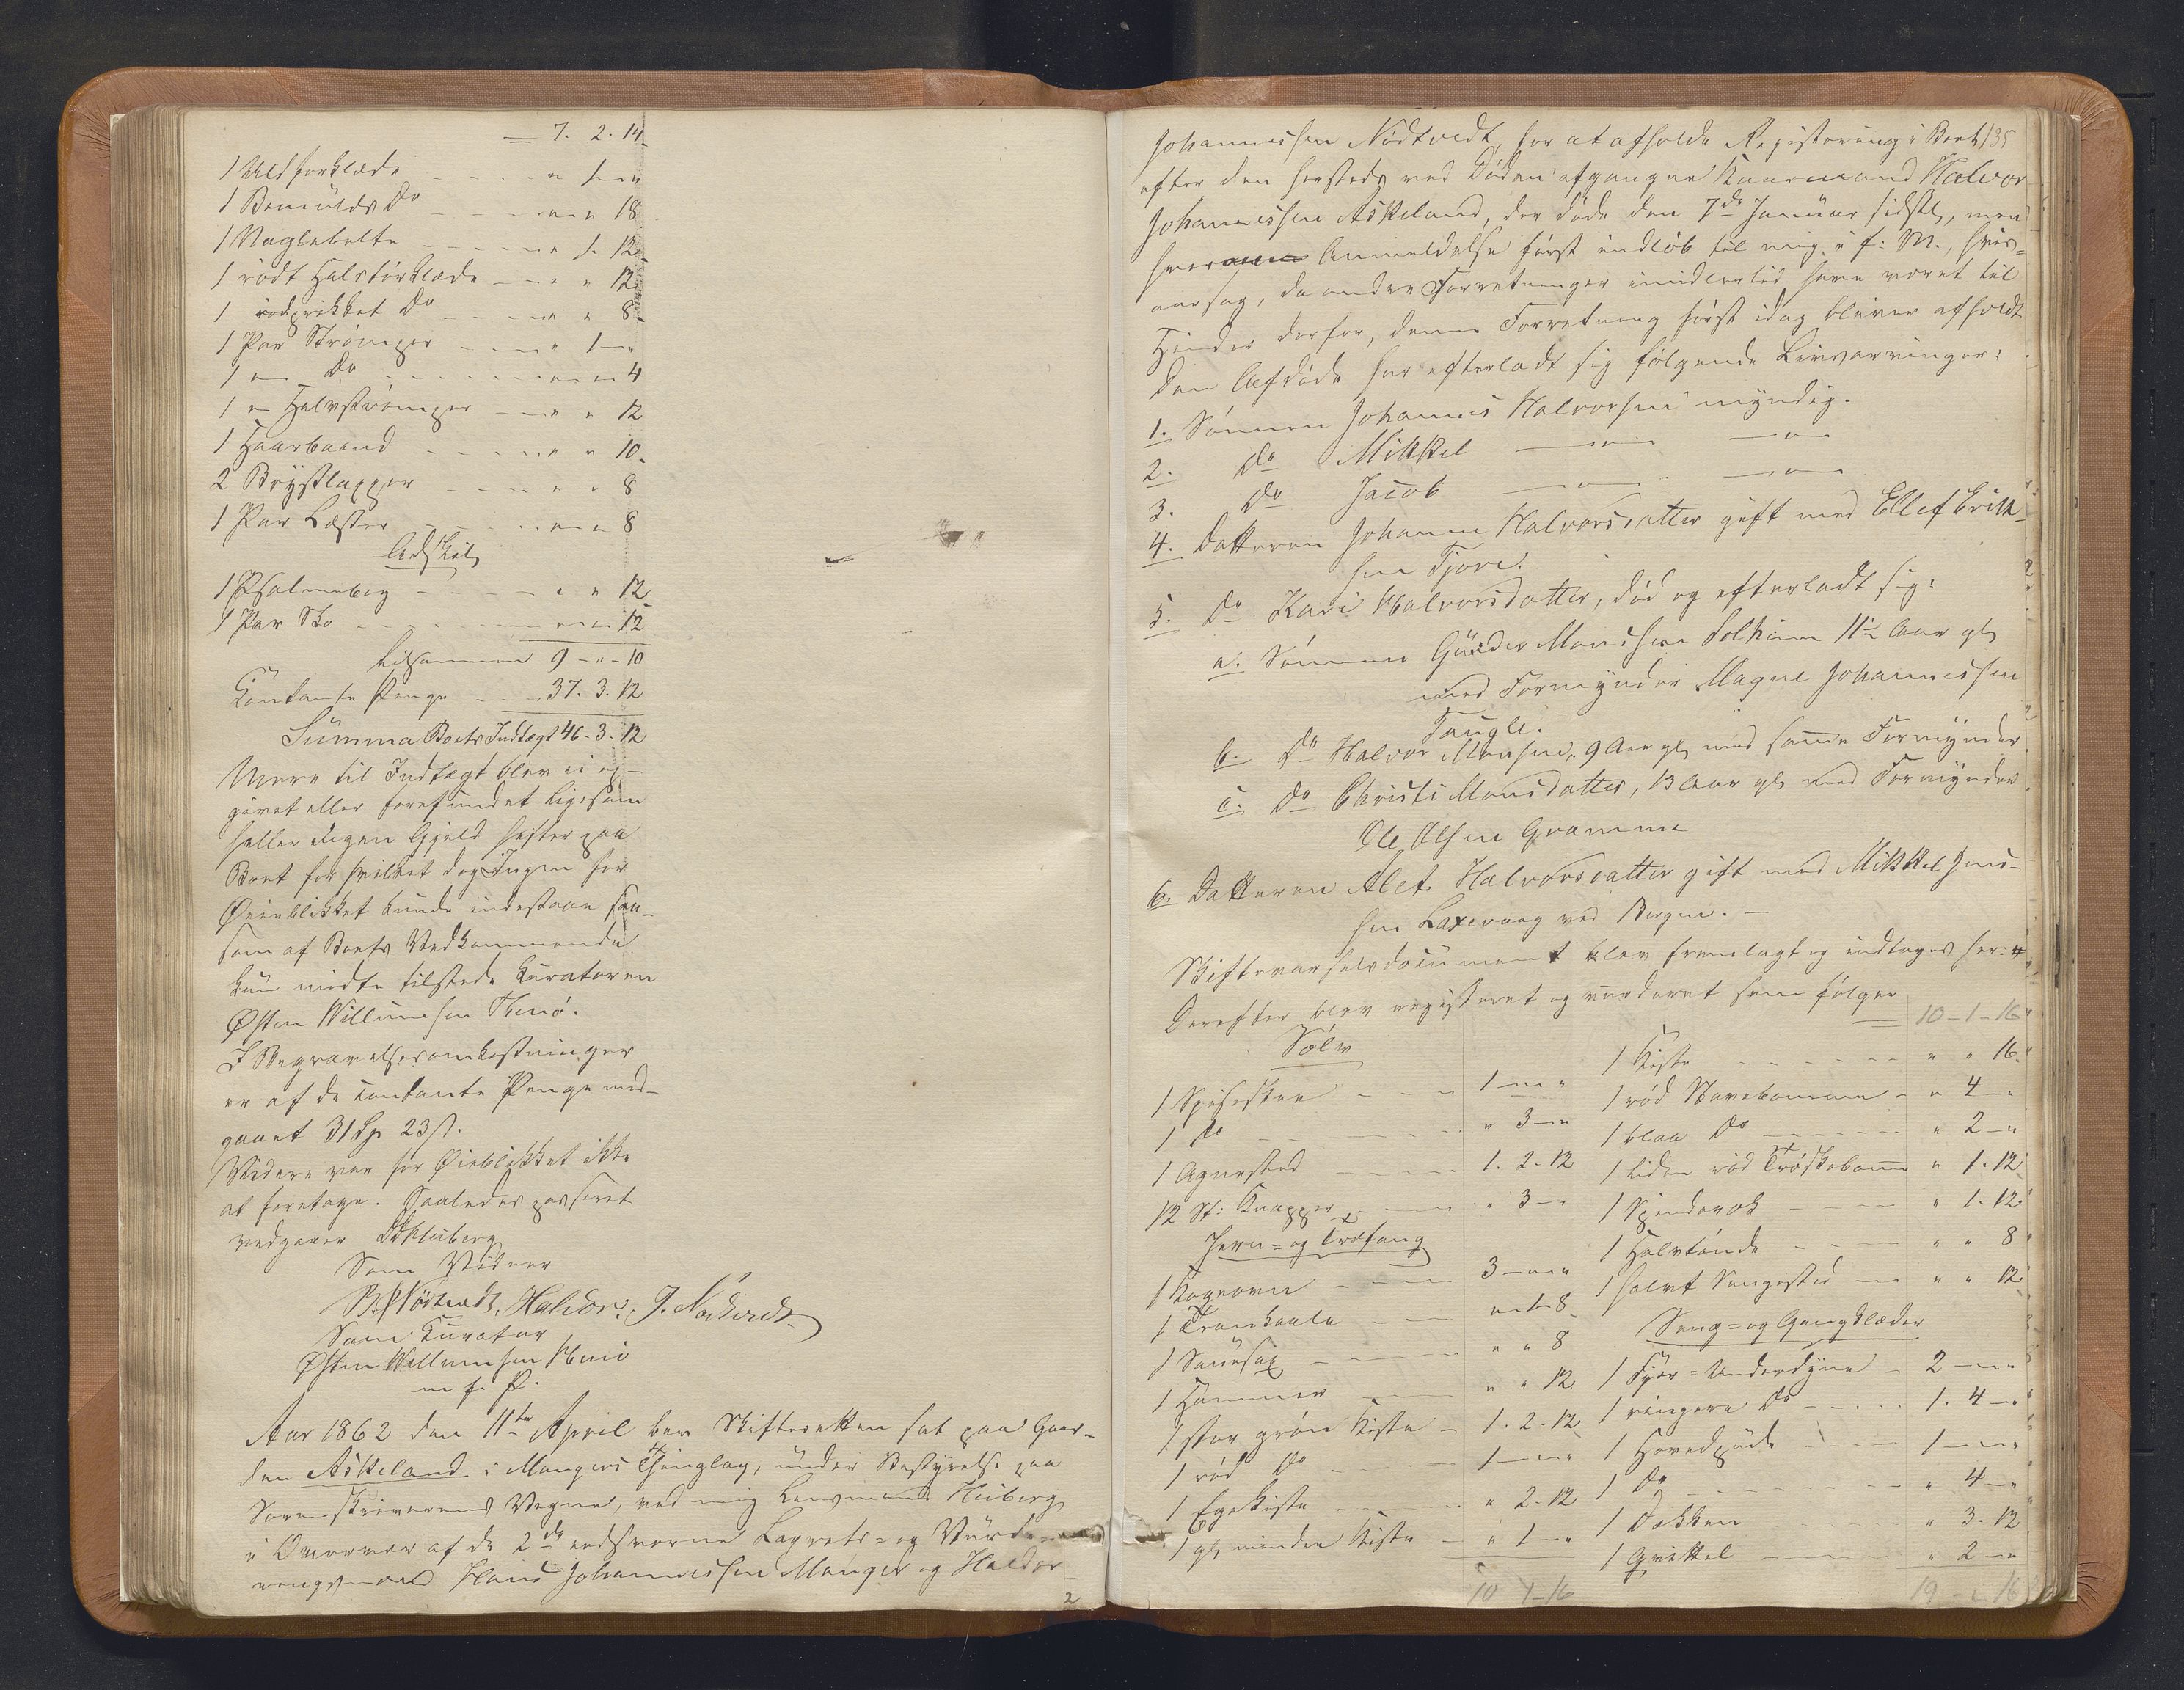 = 7. 2. 14
1 Uldforklæde - - - " 1 - "
1 Bomulds Do - - - " " 18
1 Naglebelte - - - " 1. 12
1 rødt Halstørklæde - - " " 12
1 rødprikket Do - - - " " 8
1 Par Strømper - - - " 1 - "
1 " Do - - - " " 4
1 " Halvstrømper - - " " 12
1 Haarbaand - - - " " 10
2 Brystlapper - - - " " 8
1 Par Læster - - - " " 8
Adskil
1 Psalmebog - - - " " 12
1 Par Sko - - - " " 12
tilsammen 9 - " - 10
Contante Penge - - 37. 3. 12
Summa Boets Indtægt 46 - 3 - 12
Mere til Indtægt blev ei op-
givet eller forefundet ligesom
heller ingen Gjeld hefter paa
Boet for hvilket dog Ingen for
Øieblikket kunde indestaae saa-
som af Boets Vedkommende
kun mødte tilstede Curatoren
Østen Willumsen
I Begravelsesomkostninger
er af de contante Penge med-
gaaet 31 Sp 23 s.
Videre var for Øieblikket ikke
at foretage. Saaledes passeret
vedgaaer Heiberg
Som Vidner
Halvor. J. Nødtvedt
Som Curator
Østen Willumsen
m. f. P.
Aar 1862 den 11te April blev Skifteretten sat paa Gaar-
den Askeland i Mangers Thinglag, under Bestyrelse paa
Sorenskriverens Vegne, ved mig Lensmand Heiberg
i Overvær af de 2de edsvorne Lagrets- og Vurde-
ringsmænd Hans Johannessen Manger og Haldor
2
Johannessen Nødtvedt, for at afholde Registrering i Boet 135
efter den hersteds ved Døden afgangne Kaarmand Halvor
Johannessen Askeland, der døde den 7de Januar sidstl, men
hvis Anmeldelse først indløb til mig i f: M., hvis-
aarsag, da andre Forretninger imidlertid have været til
Hinder derfor, denne Forretning først idag bliver afholdt
Den Afdøde har efterladt sig følgende Livsarvinger:
1. Sønnen Johannes Halvorsen myndig.
2. Do Mikkel — " — — " —
3. Do Jacob — " — — " —
4. Datteren Johanne Halvorsdatter gift med Ellef Erik-
sen Fjore.
5. Do Kari Halvorsdatter, død og efterladt sig:
a. Sønnen Gunder Monssen Solheim 11½ Aar gl
med Formynder Magne Johannessen
Taugle.
b. Do Halvor Monsen, 9 Aar gl med samme Formynder
c. Do Christi Monsdatter, 13 Aar gl med Formynder
Ole Olsen Gramme
6. Datteren Alet Halvorsdatter gift med Mikkel Jens-
sen Laxevaag ved Bergen. -
Skiftevarselsdocument blev fremlagt og indtages her: #
Derefter blev registreret og vurderet som følger
Sølv
1 Spiseskee - - - 1 - " - "
1 Do - - - " 3 - "
1 Agnested - - - 1. 2. 12
12 St: Knapper - - - " 3 - "
Jern- og Træfang
1 Kogeovn - - - 3 - " - "
1 Trankaale - - - " 1 - 8
1 Sauesax - - - " " 8
1 Hammer - - - " " 12
1 stor grøn Kiste - 1. 2. 12
1 rød Do - - - 1 - " - "
1 Egekiste - - - " 2. 12
1 gl mindre Kiste - " 1 - "
10 1 - 16
= 10 - 1 - 16
1 Kiste - - - " " 16
1 rød - " 4 - "
1 blaa Do - - - " 2 - "
1 liden rød " 1. 12
1 Spinderok - - - " 1. 12
1 Halvtønde - - - " " 8
1 halvt Sengested - " " 12
Seng- og Gangklæder
1 Fjær-Underdyne - 2 - " - "
1 ringere Do - - - 1. 4 - "
1 Hovedpude - - - 1 - " - "
1 Do - - - " 4 - "
1 Dækken " 3. 12
1 - - - " 2 - "
19 - 1 16